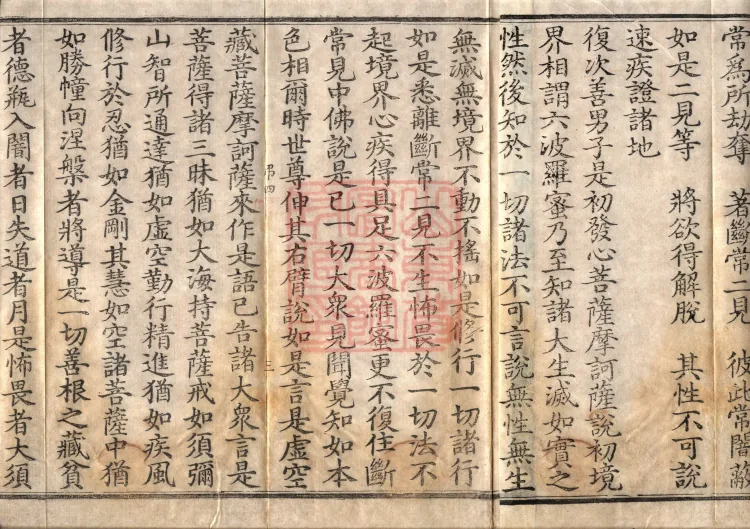 常為所劫奪 著斷常二見 彼此常闇蔽
如是二見等 將欲得解脫 其性不可說
速疾證諸地
復次善男子是初發心菩薩摩訶薩說初境
界相謂六波羅蜜乃至知諸大生滅如實之
性然後知於一切諸法不可言說無性無生
無滅無境界不動不搖如是修行一切諸行
如是悉離斷常二見不生怖畏於一切法不
起境界心疾得具足六波羅蜜更不復住斷
常見中佛說是已一切大眾見聞覺知如本
色相爾時世尊伸其右臂說如是言是虛空
弟四 三
藏菩薩摩訶薩來作是語已告諸大眾言是
菩薩得諸三昧猶如大海持菩薩戒如須彌
山智所通達猶如虛空勤行精進猶如疾風
修行於忍猶如金剛其慧如空諸菩薩中猶
如勝幢向涅槃者將導是一切善根之藏貧
者德瓶入闇者日失道者月是怖畏者大須